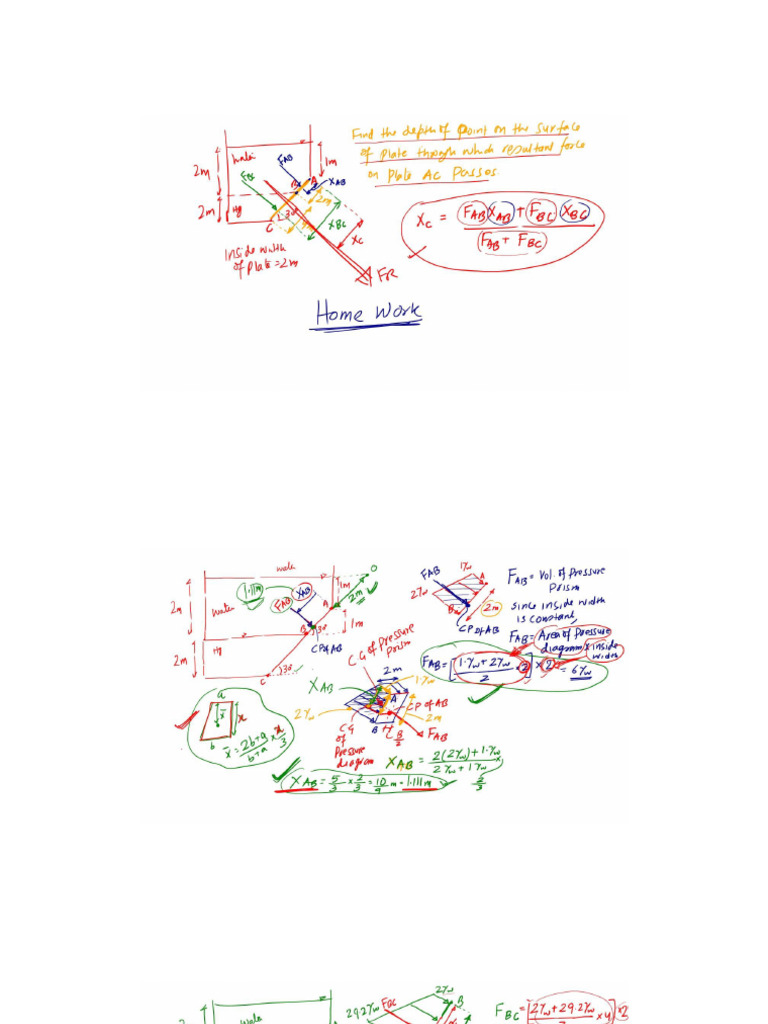 Find the depth of point on the surface
of plate through which resultant force
on plate AC passes.
water
2m
1m
FAB
FBC
B
A
XAB
2m
2m
Hg
30°
XBC
C
XC
Inside width
of plate = 2m
FR
XC = FAB XAB + FBC XBC
FAB + FBC
Home Work
water
O
1.11m
XAB
1m
2m
2m
water
FAB
A
B
30°
1m
CP of AB
2m
Hg
30°
C
FAB
1γw
A
2γw
B
2m
CP of AB
FAB = Vol. of Pressure
Prism
Since inside width
is constant,
FAB = Area of Pressure
diagram x inside
width
FAB = [1·γw + 2γw / 2 x 2] x 2 = 6γw
CG of Pressure
Prism
2m
1·γw
XAB
A
CP of AB
2γw
B
2m
FAB
CG
of
Pressure
diagram
a
x̄
x
b
x̄ = 2b+a / b+a x x/3
XAB = 2(2γw) + 1·γw / 2γw + 1γw x
2/3
XAB = 5/3 x 2/3 = 10/9 m = 1.111m
2γw
29.2γw
FBC
B
water
FBC = [2γw + 29.2γw / 2 x 4] x 2